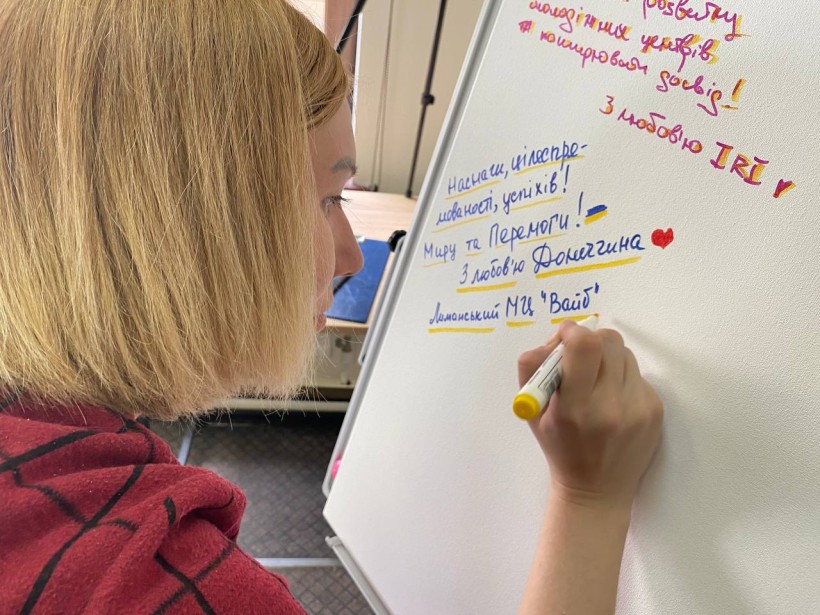 розвитку
молодіжних центрів
та конкурсам досвід!
З любов'ю IRI
Наснаги, цілеспря-
мованості, успіхів!
Миру та Перемоги!
З любов'ю Донеччина
Лиманський МЦ "Вайб"